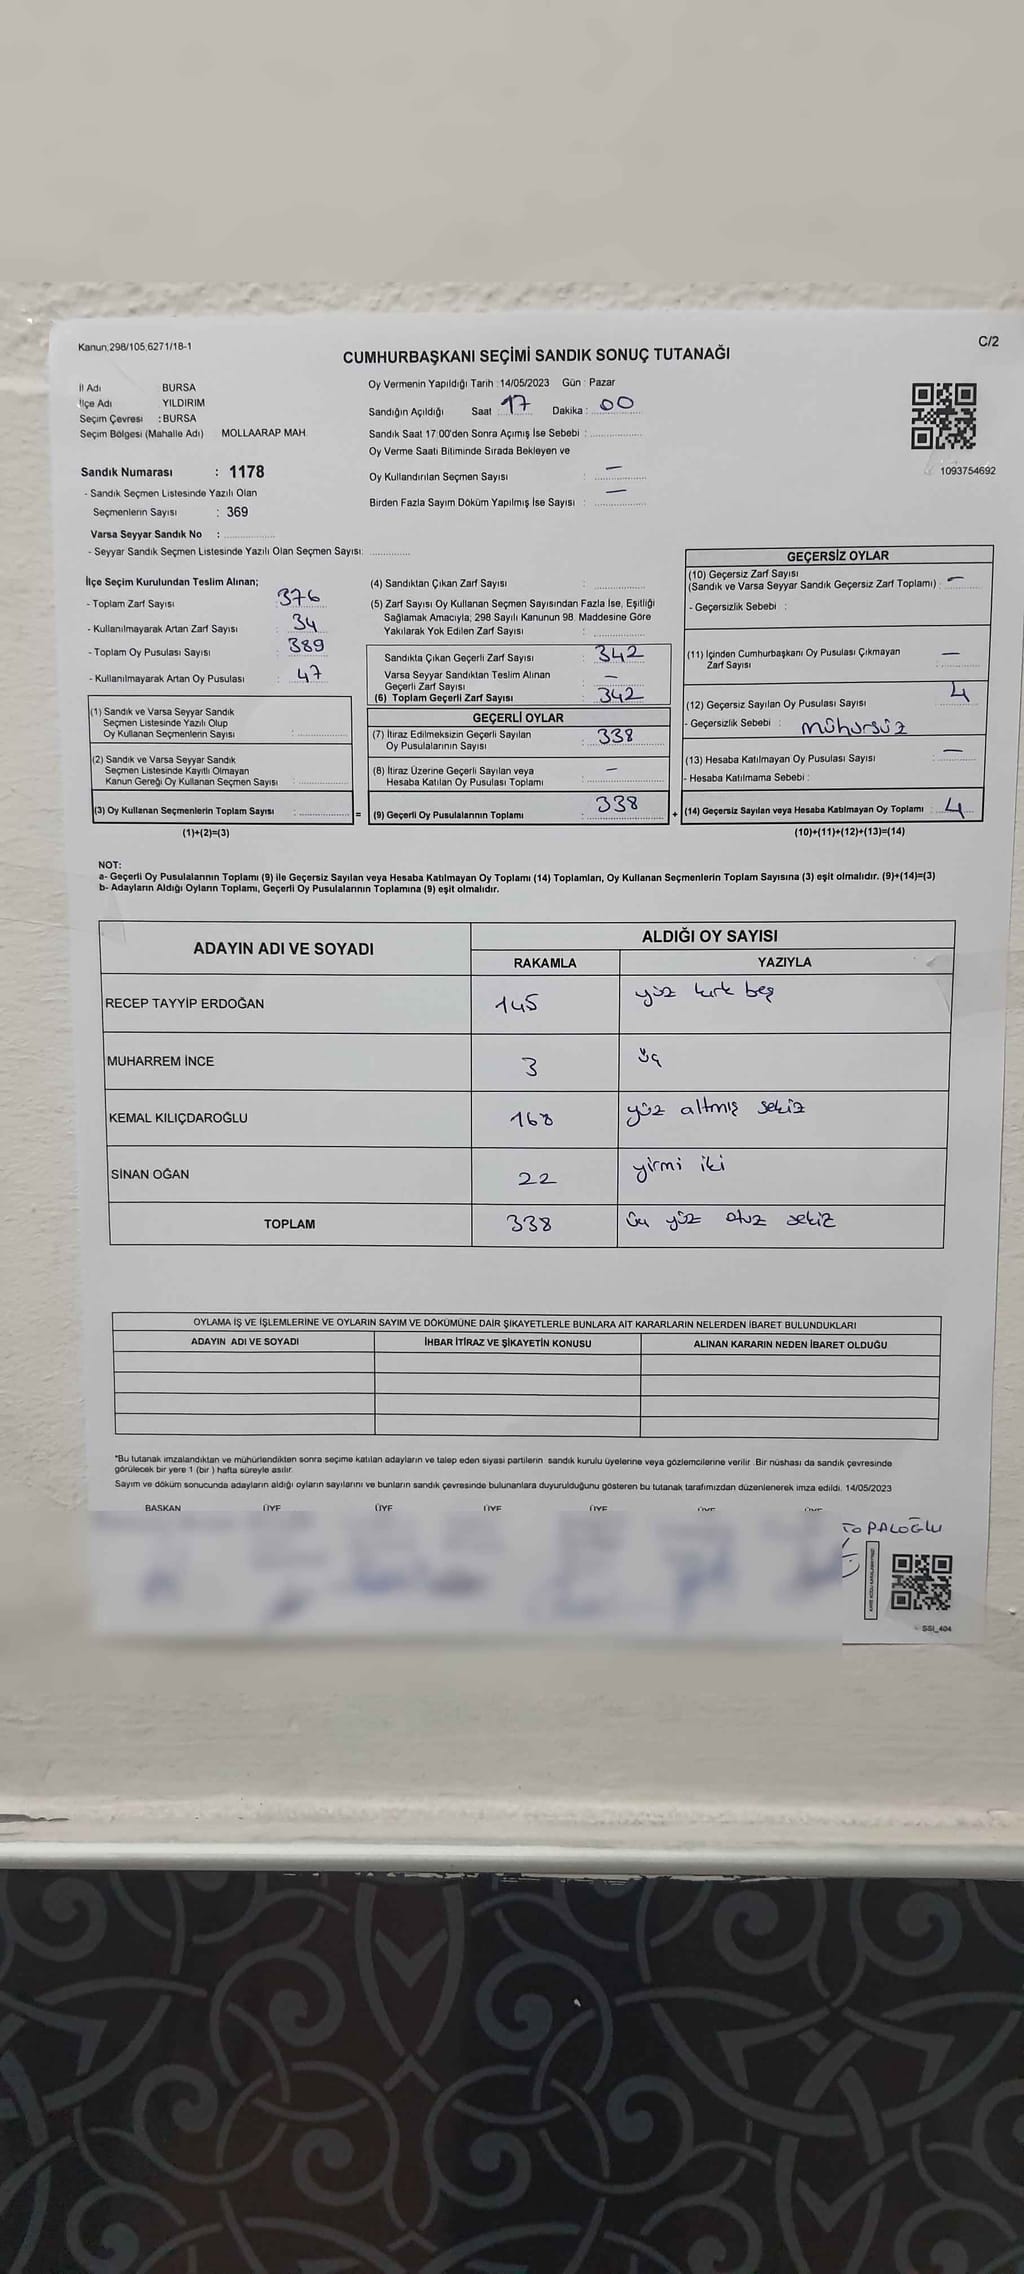 Kanun,298/105,6271/18-1
C/2
CUMHURBAŞKANI SEÇİMİ SANDIK SONUÇ TUTANAĞI
İl Adı BURSA
İlçe Adı YILDIRIM
Seçim Çevresi : BURSA
Seçim Bölgesi (Mahalle Adı) MOLLAARAP MAH.
Sandık Numarası : 1178
- Sandık Seçmen Listesinde Yazılı Olan
Seçmenlerin Sayısı : 369
Varsa Seyyar Sandık No :
- Seyyar Sandık Seçmen Listesinde Yazılı Olan Seçmen Sayısı:
Oy Vermenin Yapıldığı Tarih : 14/05/2023 Gün : Pazar
Sandığın Açıldığı Saat 17 Dakika : 00
Sandık Saat 17:00'den Sonra Açımış İse Sebebi :
Oy Verme Saati Bitiminde Sırada Bekleyen ve
Oy Kullandırılan Seçmen Sayısı : —
Birden Fazla Sayım Döküm Yapılmış İse Sayısı : —
1093754692
İlçe Seçim Kurulundan Teslim Alınan;
- Toplam Zarf Sayısı : 376
- Kullanılmayarak Artan Zarf Sayısı : 34
- Toplam Oy Pusulası Sayısı : 389
- Kullanılmayarak Artan Oy Pusulası : 47
(1) Sandık ve Varsa Seyyar Sandık
Seçmen Listesinde Yazılı Olup
Oy Kullanan Seçmenlerin Sayısı :
(2) Sandık ve Varsa Seyyar Sandık
Seçmen Listesinde Kayıtlı Olmayan
Kanun Gereği Oy Kullanan Seçmen Sayısı :
(3) Oy Kullanan Seçmenlerin Toplam Sayısı : =
(1)+(2)=(3)
(4) Sandıktan Çıkan Zarf Sayısı :
(5) Zarf Sayısı Oy Kullanan Seçmen Sayısından Fazla İse, Eşitliği
Sağlamak Amacıyla; 298 Sayılı Kanunun 98. Maddesine Göre
Yakılarak Yok Edilen Zarf Sayısı :
Sandıkta Çıkan Geçerli Zarf Sayısı : 342
Varsa Seyyar Sandıktan Teslim Alınan
Geçerli Zarf Sayısı : —
(6) Toplam Geçerli Zarf Sayısı : 342
GEÇERLİ OYLAR
(7) İtiraz Edilmeksizin Geçerli Sayılan
Oy Pusulalarının Sayısı : 338
(8) İtiraz Üzerine Geçerli Sayılan veya
Hesaba Katılan Oy Pusulası Toplamı : —
(9) Geçerli Oy Pusulalarının Toplamı : 338 +
GEÇERSİZ OYLAR
(10) Geçersiz Zarf Sayısı
(Sandık ve Varsa Seyyar Sandık Geçersiz Zarf Toplamı) : —
- Geçersizlik Sebebi :
(11) İçinden Cumhurbaşkanı Oy Pusulası Çıkmayan
Zarf Sayısı : —
(12) Geçersiz Sayılan Oy Pusulası Sayısı : 4
- Geçersizlik Sebebi : mühürsüz
(13) Hesaba Katılmayan Oy Pusulası Sayısı : —
- Hesaba Katılmama Sebebi :
(14) Geçersiz Sayılan veya Hesaba Katılmayan Oy Toplamı : 4
(10)+(11)+(12)+(13)=(14)
NOT:
a- Geçerli Oy Pusulalarının Toplamı (9) ile Geçersiz Sayılan veya Hesaba Katılmayan Oy Toplamı (14) Toplamları, Oy Kullanan Seçmenlerin Toplam Sayısına (3) eşit olmalıdır. (9)+(14)=(3)
b- Adayların Aldığı Oyların Toplamı, Geçerli Oy Pusulalarının Toplamına (9) eşit olmalıdır.
ADAYIN ADI VE SOYADI ALDIĞI OY SAYISI
RAKAMLA YAZIYLA
RECEP TAYYİP ERDOĞAN 145 yüz kırk beş
MUHARREM İNCE 3 üç
KEMAL KILIÇDAROĞLU 168 yüz altmış sekiz
SİNAN OĞAN 22 yirmi iki
TOPLAM 338 üç yüz otuz sekiz
OYLAMA İŞ VE İŞLEMLERİNE VE OYLARIN SAYIM VE DÖKÜMÜNE DAİR ŞİKAYETLERLE BUNLARA AİT KARARLARIN NELERDEN İBARET BULUNDUKLARI
ADAYIN ADI VE SOYADI İHBAR İTİRAZ VE ŞİKAYETİN KONUSU ALINAN KARARIN NEDEN İBARET OLDUĞU
*Bu tutanak imzalandıktan ve mühürlendikten sonra seçime katılan adayların ve talep eden siyasi partilerin sandık kurulu üyelerine veya gözlemcilerine verilir. Bir nüshası da sandık çevresinde
görülecek bir yere 1 (bir) hafta süreyle asılır.
Sayım ve döküm sonucunda adayların aldığı oyların sayılarını ve bunların sandık çevresinde bulunanlara duyurulduğunu gösteren bu tutanak tarafımızdan düzenlenerek imza edildi. 14/05/2023
BAŞKAN ÜYE ÜYE ÜYE ÜYE ÜYE ÜYE
TOPALOĞLU
SSI_404